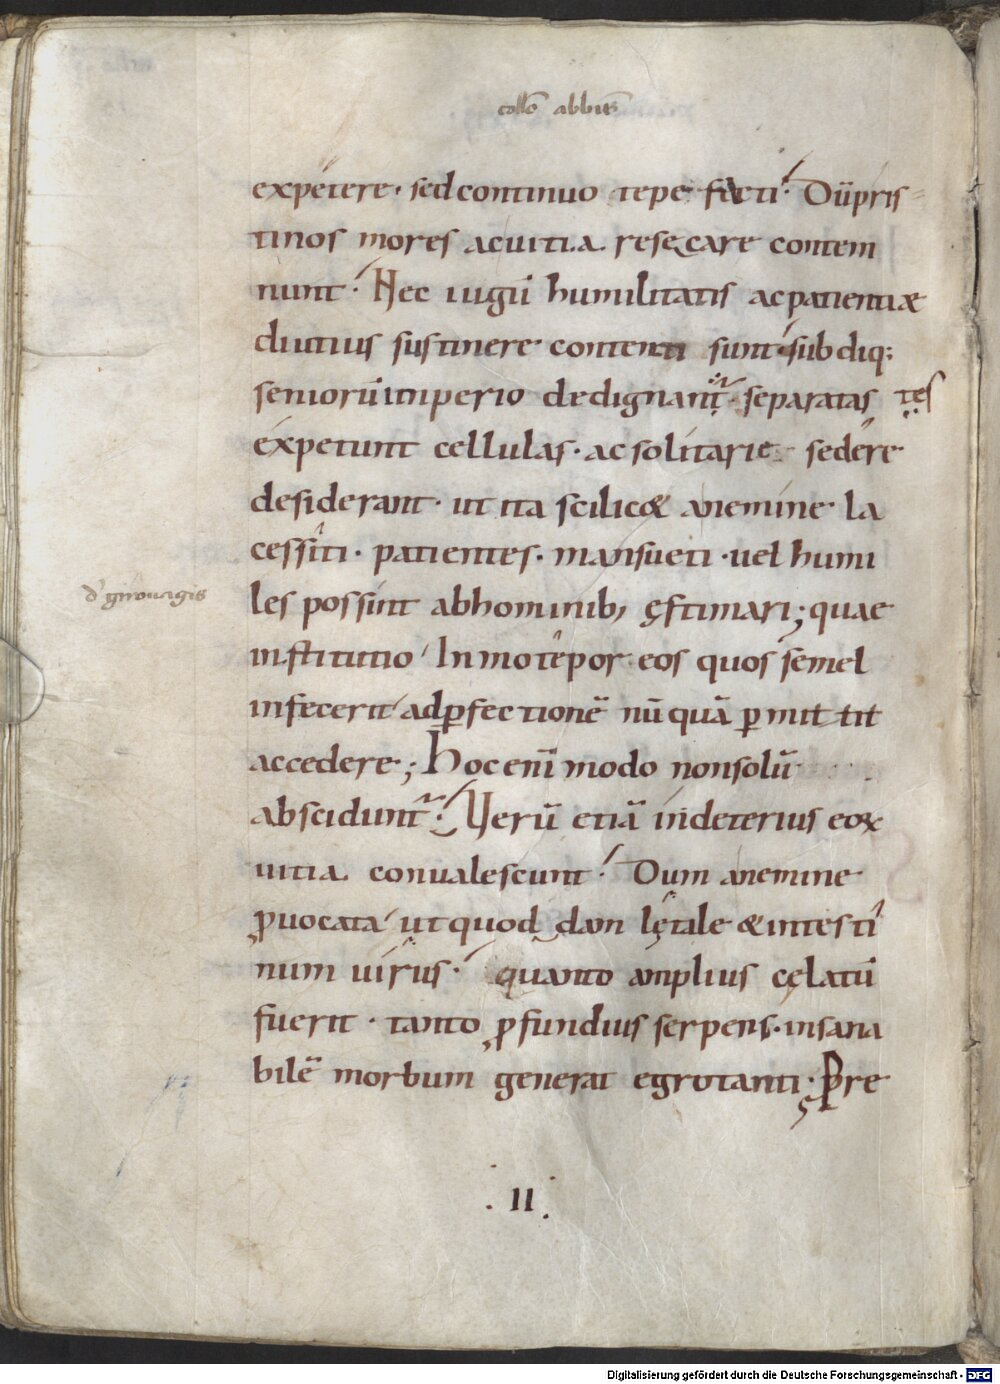 collõ abbtis
expetere· sed continuo tepe facti· Dū pris
tinos mores ac uitia resecare contem
nunt· Nec iugū humilitatis ac patientiæ
diutius sustinere contenti sunt· subdiq;
seniorū imperio dedignant᷑· separatas tes
expetunt cellulas· ac solitarie sedere
desiderant· ut ita scilic& a nemine la
cessiti· patientes· mansueti· uel humi
les possint ab hominib, ęstimari; quae
institutio Inmo tēpor eos quos semel
infecerit ad ꝑfectionē nūquā ꝑmittit
accedere; Hoc enī modo non solū
absciduntᷣ· Uerū etiā in deterius eoꝝ
uitia conualescunt· Dum a nemine
ꝓuocata ut quoddam lętale & intesti
num uirus· quanto amplius cęlatū
fuerit· tanto ꝓfundius serpens· insana
bilē morbum generat egrotanti· Pre
d' girouagis
· II ·
Digitalisierung gefördert durch die Deutsche Forschungsgemeinschaft - DFG